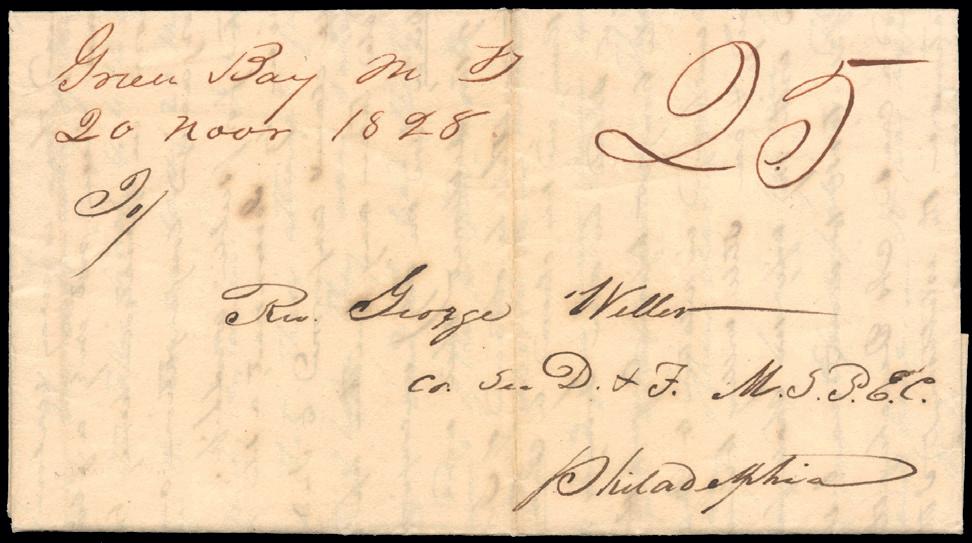 Green Bay M T
20 Novr 1828.
25
To/
Rev. George Weller
Co. Sec D. & F. M. S. P. E. C.
Philadelphia